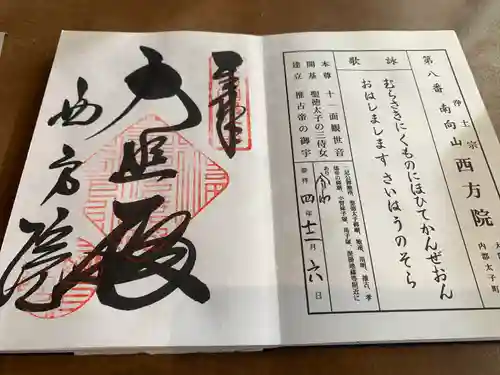 第八番 南向山
浄土宗
西方院
内郡太子町
詠歌
むらさきにくものにほひてかんぜおん
おはしまします さいはうのそら
本尊 十一面観世音
開基 聖徳太子の三侍女
建立 推古帝の御宇
令和四年十二月六日
奉拝
大悲殿
西方院